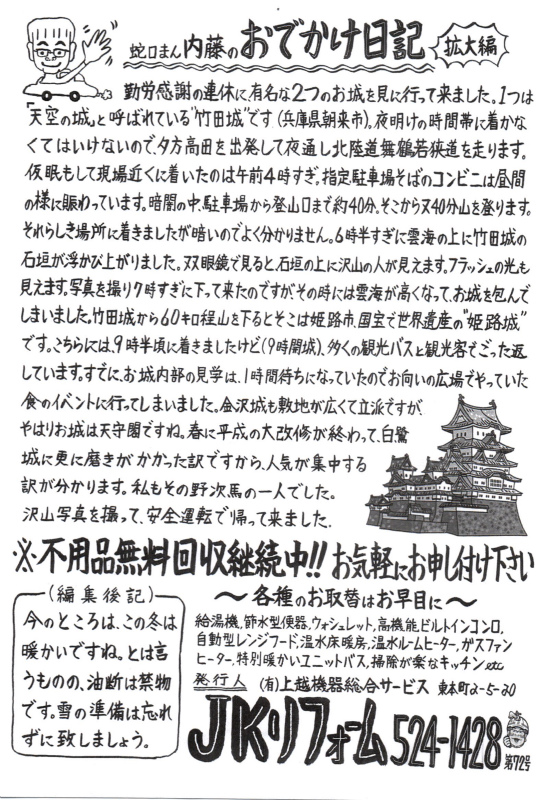 蛇口まん 内藤の おでかけ日記 拡大編
勤労感謝の連休に、有名な2つのお城を見に行って来ました。1つは
「天空の城」と呼ばれている"竹田城"です(兵庫県朝来市)。夜明けの時間帯に着かな
くてはいけないので、夕方高田を出発して夜通し北陸道舞鶴若狭道を走ります。
仮眠もして現場近くに着いたのは午前4時すぎ。指定駐車場そばのコンビニは昼間
の様に賑わっています。暗闇の中、駐車場から登山口まで約40分。そこから又40分山を登ります。
それらしき場所に着きましたが暗いのでよく分かりません。6時半すぎに雲海の上に竹田城の
石垣が浮かび上がりました。双眼鏡で見ると、石垣の上に沢山の人が見えます。フラッシュの光も
見えます。写真を撮り7時すぎに下って来たのですが、その時には雲海が高くなって、お城を包んで
しまいました。竹田城から60キロ程山を下るとそこは姫路市、国宝で世界遺産の"姫路城"
です。こちらには、9時半頃に着きましたけど(9時開城)、多くの観光バスと観光客でごった返
しています。すでに、お城内部の見学は、1時間待ちになっていたのでお向いの広場でやっていた
食のイベントに行ってしまいました。金沢城も敷地が広くて立派ですが、
やはりお城は天守閣ですね。春に平成の大改修が終わって、白鷺
城に更に磨きがかかった訳ですから、人気が集中する
訳が分かります。私もその野次馬の一人でした。
沢山写真を撮って、安全運転で帰って来ました。
※不用品無料回収継続中!! お気軽にお申し付け下さい
(編集後記)
今のところは、この冬は
暖かいですね。とは言
うものの、油断は禁物
です。雪の準備は忘れ
ずに致しましょう。
～各種のお取替はお早目に～
給湯機、節水型便器、ウォシュレット、高機能ビルトインコンロ、
自動型レンジフード、温水床暖房、温水ルームヒーター、ガスファン
ヒーター、特別暖かいユニットバス、掃除が楽なキッチン etc
発行人 (有)上越機器総合サービス 東本町2-5-20
JKリフォーム 524-1428 第72号